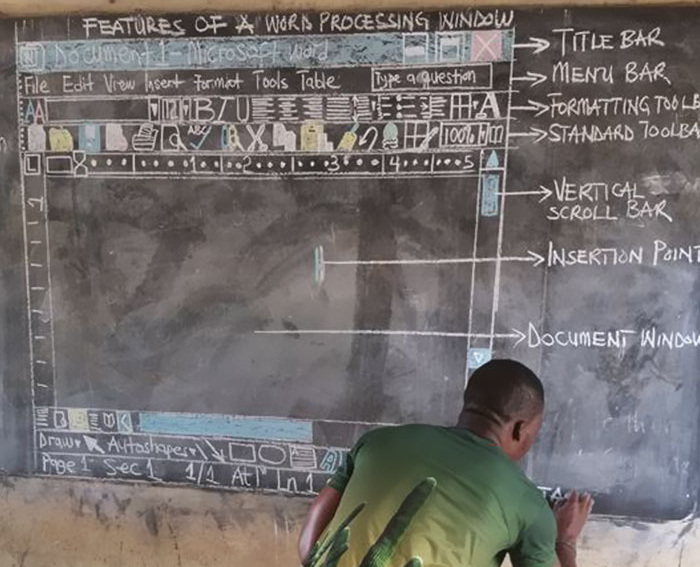 FEATURES OF A WORD PROCESSING WINDOW
Document 1 - Microsoft word
TITLE BAR
File Edit View Insert Format Tools Table
Type a question
MENU BAR
AA
B I U
A
FORMATTING TOOLB
ABC
100%
STANDARD TOOLBA
L
1 2 3 4 5
1
VERTICAL
SCROLL BAR
INSERTION POINT
DOCUMENT WINDOW
Draw Autoshapes
A
Page 1 Sec 1 1/1 At 1" ln 1